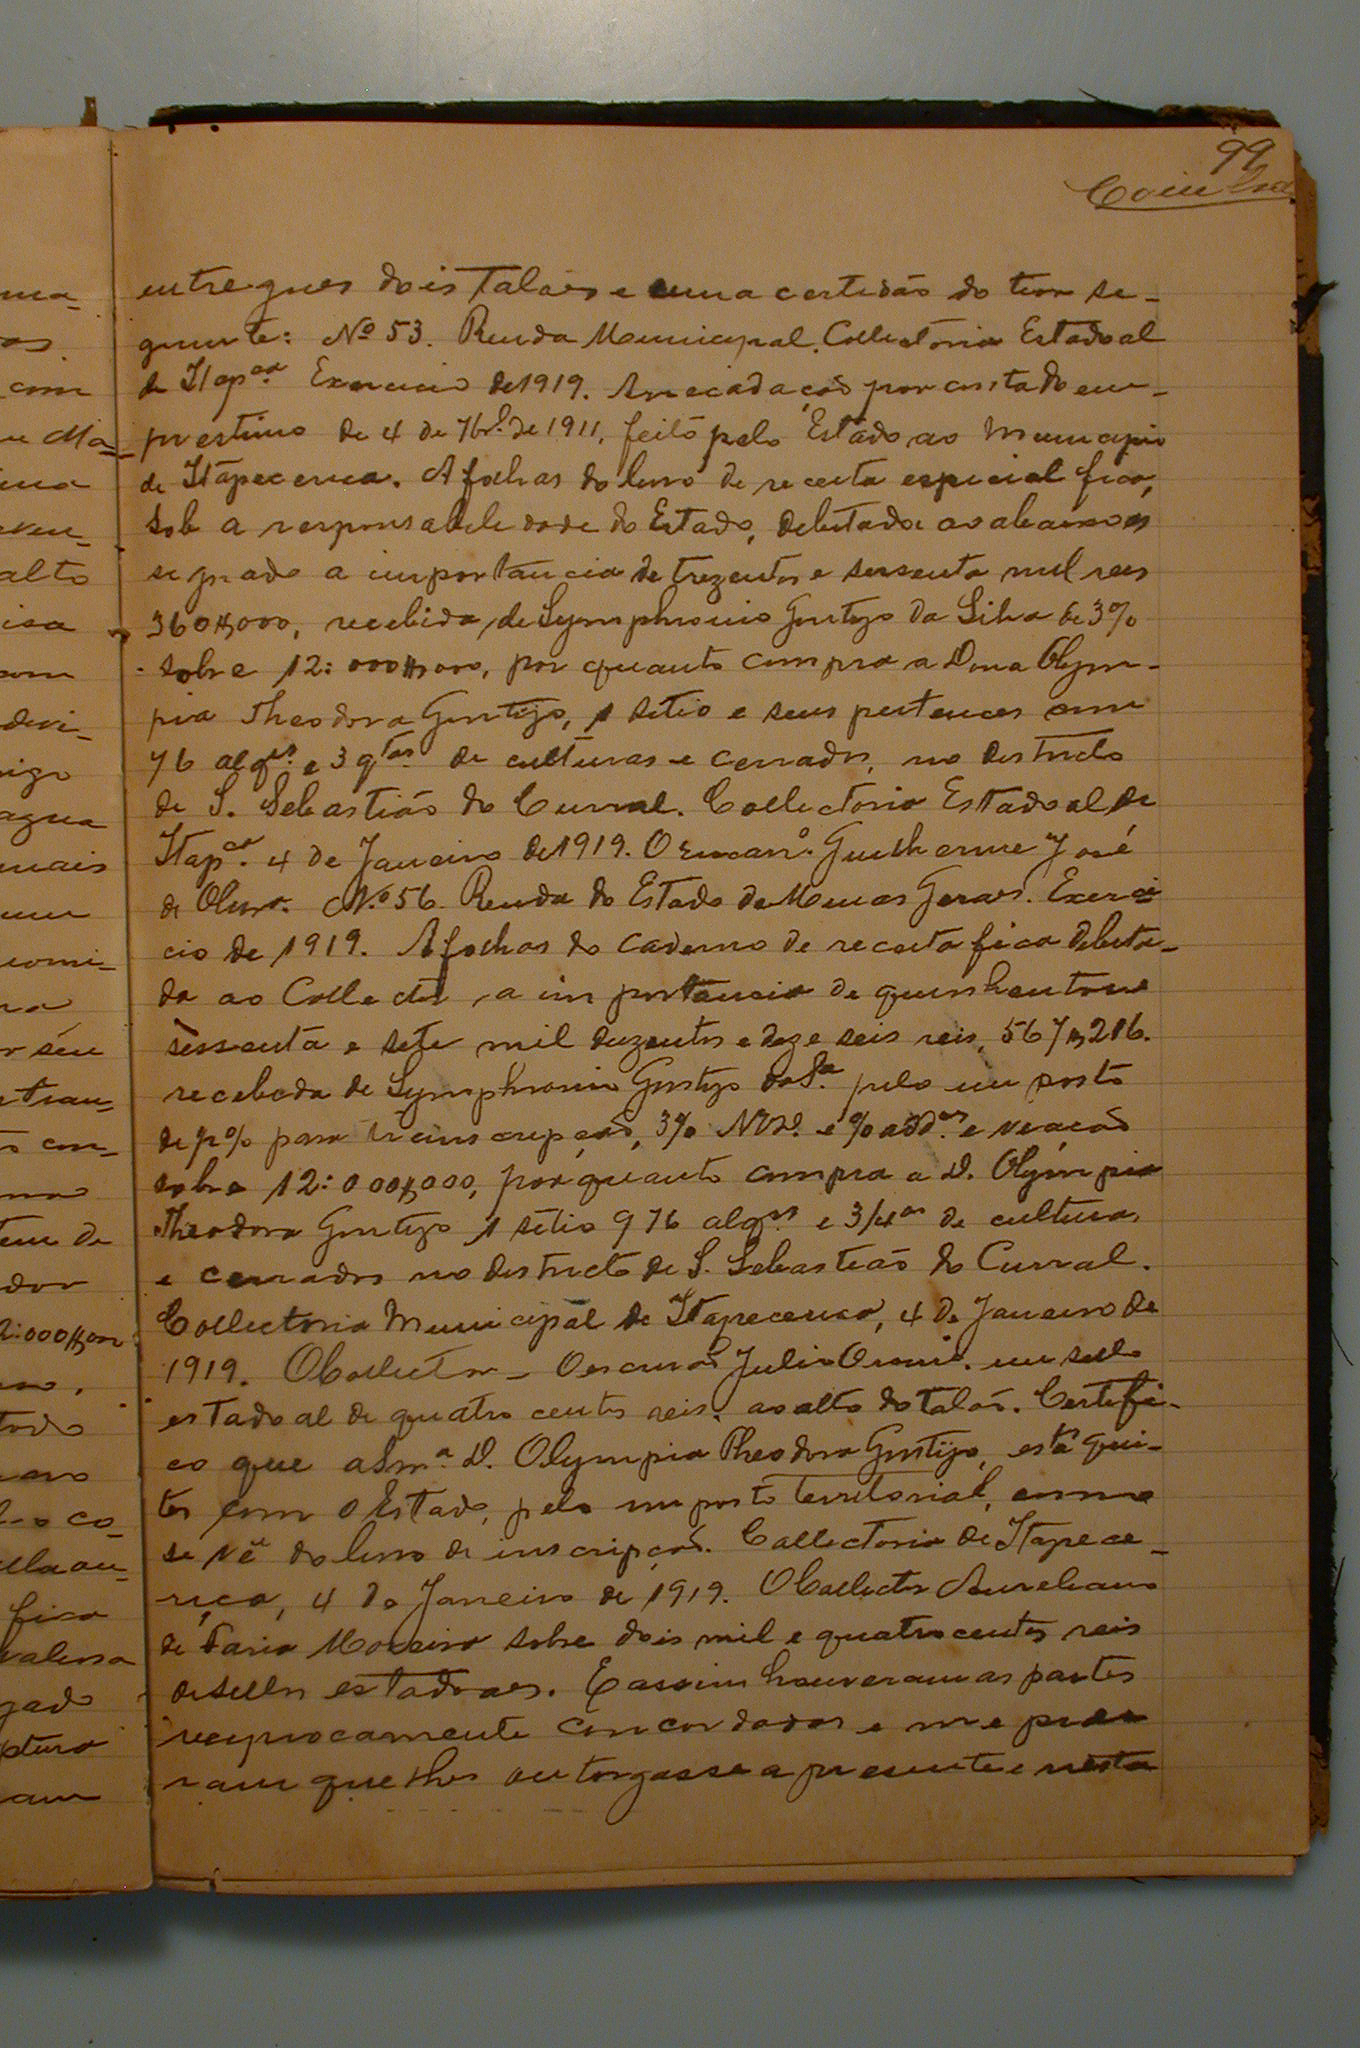 99
entregues dois talões e uma certidão do teor se-
guinte: Nº 53. Renda Municipal. Collectoria Estadoal
de Itapcª Exercicio de 1919. Arrecadação por conta do em-
prestimo de 4 de 7brº de 1911, feito pelo Estado ao Municipio
de Itapecerica. A folhas do livro de receita especial fica,
sob a responsabilidade do Estado, debitada ao abaixo as
signado a importancia de trezentos e sessenta mil reis
360$000, recebida de Symphronio Gontijo da Silva de 3%
sobre 12:000$000, por quanto compra a Dona Olym-
pia Theodora Gontijo, 1 sitio e seus pertences com
76 alqrs. e 3 qtas. de culturas e cerrados, no destricto
de S. Sebastião do Curral. Collectoria Estadoal de
Itapcª. 4 de Janeiro de 1919. O Guilherme José
de Olivrª. Nº 56. Renda do Estado de Minas Geraes. Exerci
cio de 1919. A folhas do caderno de receita fica debita-
da ao Collector, a importancia de quinhentos e
sessenta e sete mil duzentos e dezeseis reis, 567$216.
recebida de Symphronio Gontijo da Sª pelo imposto
de % para transcripção, 3% e % add.es e viação
sobre 12:000$000, por quanto compra a D. Olympia
Theodora Gontijo 1 sitio 976 alqrs e 3/4as de culturas
e cerrados no destricto de S. Sebastião do Curral.
Collectoria Municipal de Itapecerica, 4 de Janeiro de
1919. O Collector - O escrivão Julio um sello
estadoal de quatro centos reis, ao alto do talão. Certifi-
co que a Snrª D. Olympia Theodora Gontijo, está qui-
tes com o Estado, pelo imposto territorial, como
se vê do livro de inscripção. Collectoria de Itapece-
rica, 4 de Janeiro de 1919. O Collector Aureliano
de Faria Moreira sobre dois mil e quatrocentos reis
de sellos estadoaes. E assim houveram as partes
reciprocamente concordadas e me pedi
ram que lhes outorgasse a presente e nesta